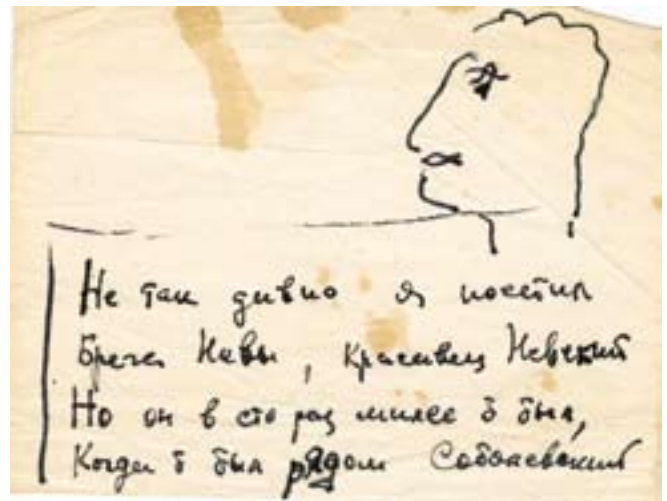 Не так дивно я посетил
Брега Невы, красавец Невский
Но он в сто раз милее б был,
Когда б был рядом Соболевский